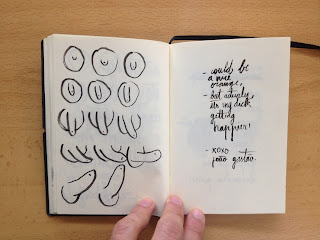 - could be
a nice
orange,
- but actually,
its my dick
getting
happier!
- xoxo
joão gustavo.